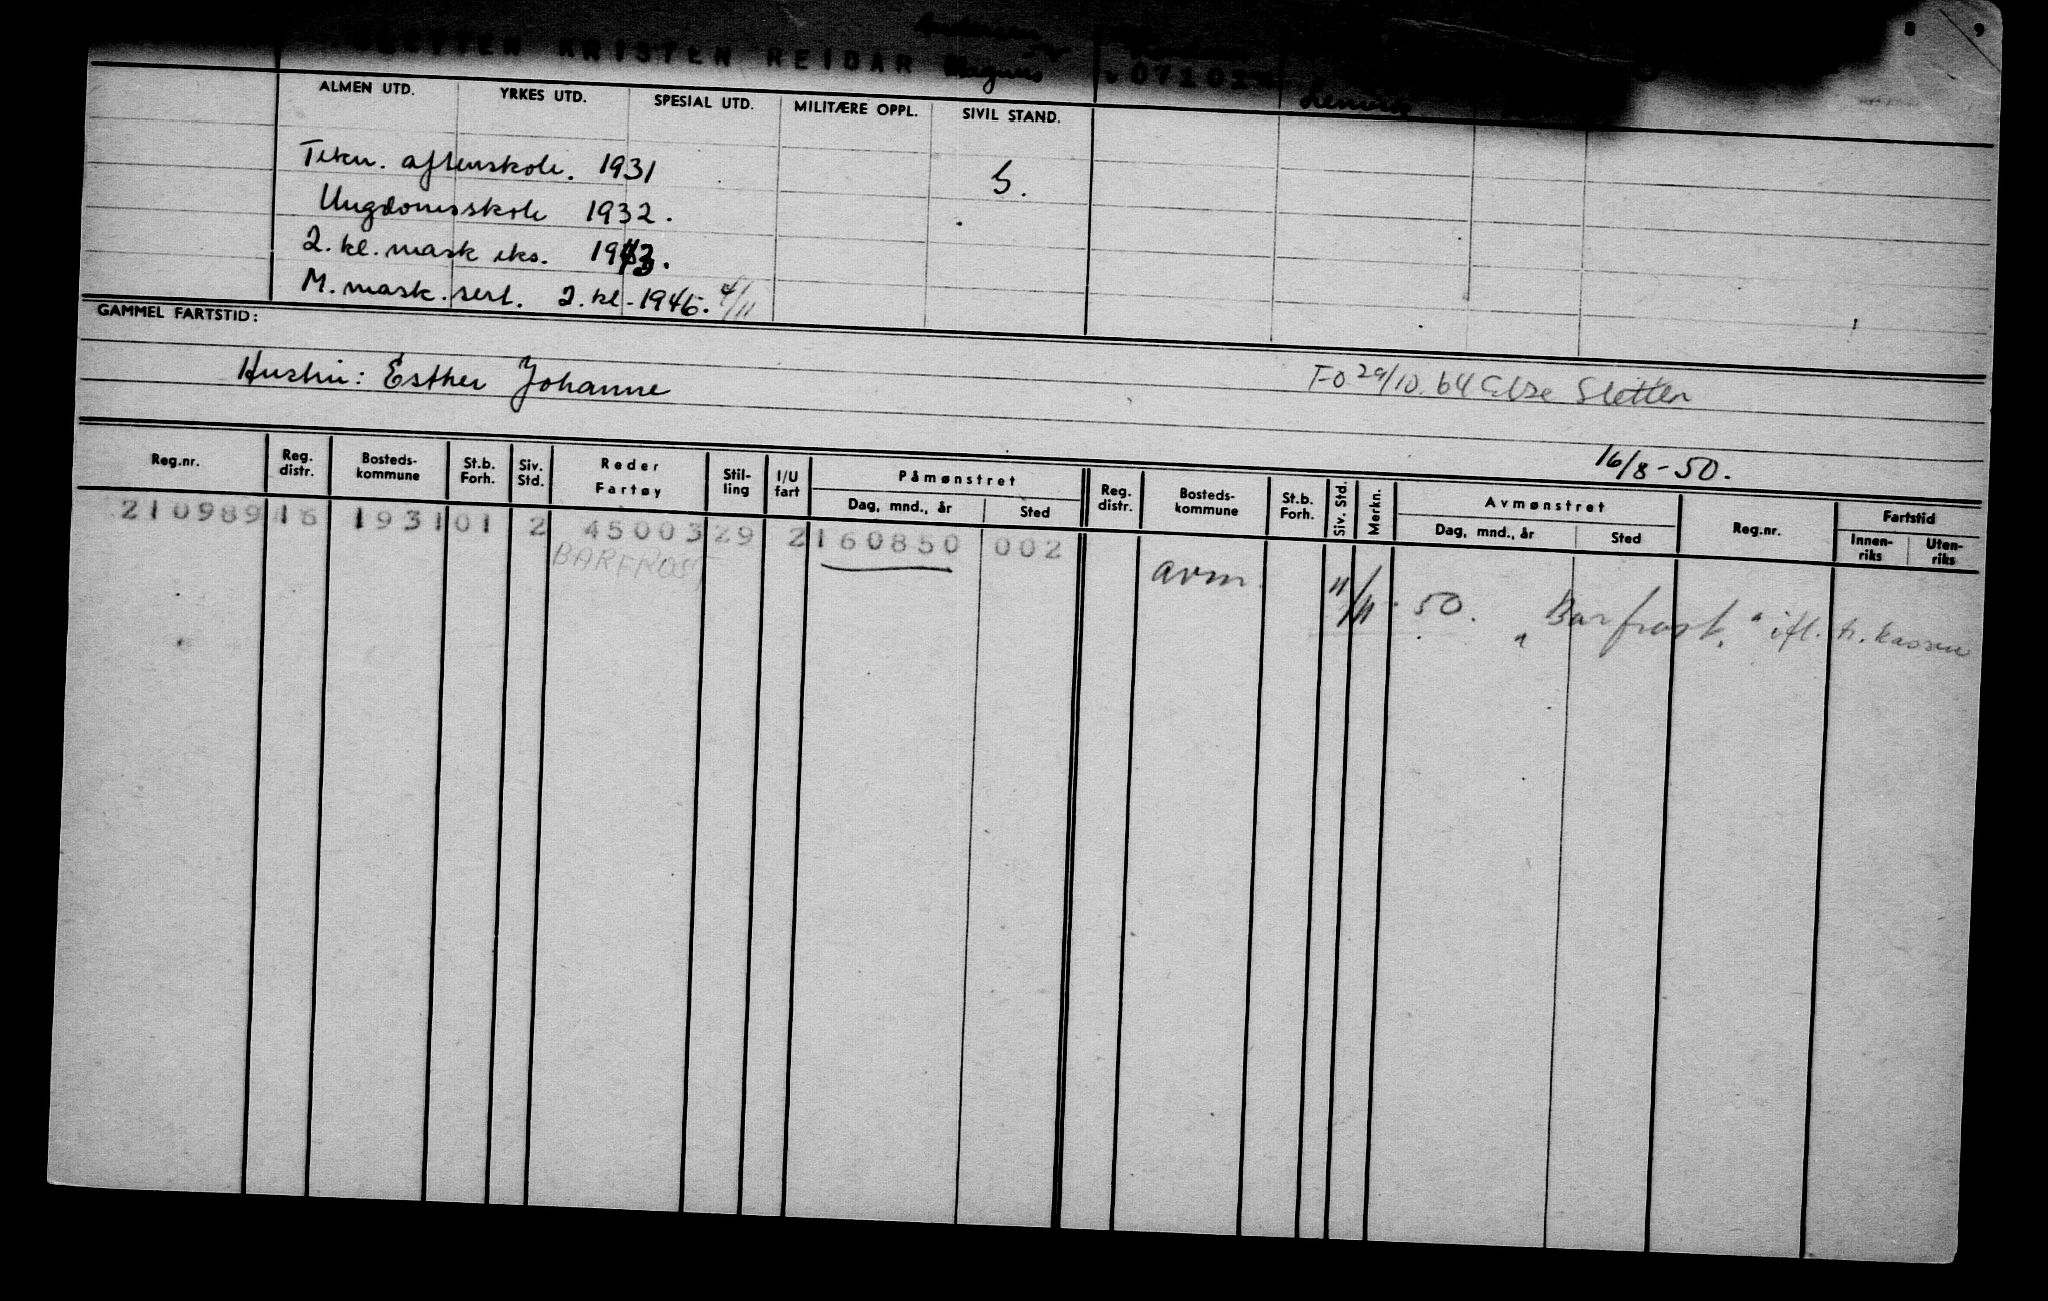 SLETTEN KRISTEN REIDAR Magnus 07101
Andersen
Lenvik
ALMEN UTD. YRKES UTD. SPESIAL UTD. MILITÆRE OPPL. SIVIL STAND.
Tekn. aftenskole. 1931 S.
Ungdomsskole 1932.
2. kl. mask eks. 1943.
M. mask. sert. 2. kl. 1945. 4/11
GAMMEL FARTSTID:
Hustru: Esther Johanne
F-o 29/10.64 Else Sletten
16/8-50.
Reg.nr. Reg. distr. Bosteds-kommune St.b. Forh. Siv. Std. Reder Fartøy Stil-ling I/U fart Påmønstret Dag, mnd., år Sted Reg. distr. Bosteds-kommune St.b. Forh. Siv. Std. Merkn. Avmønstret Dag, mnd., år Sted Reg.nr. Fartstid Innen-riks Uten-riks
210989 16 1931 01 2 45003 29 2 160850 002
BARFROST
avm. 11/11-50. "Barfrost." ifl. tr. kassen